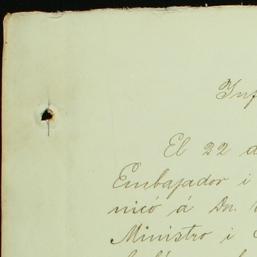 Inf
El 22 d
Embajador i
nicó á Dn.
Ministro i